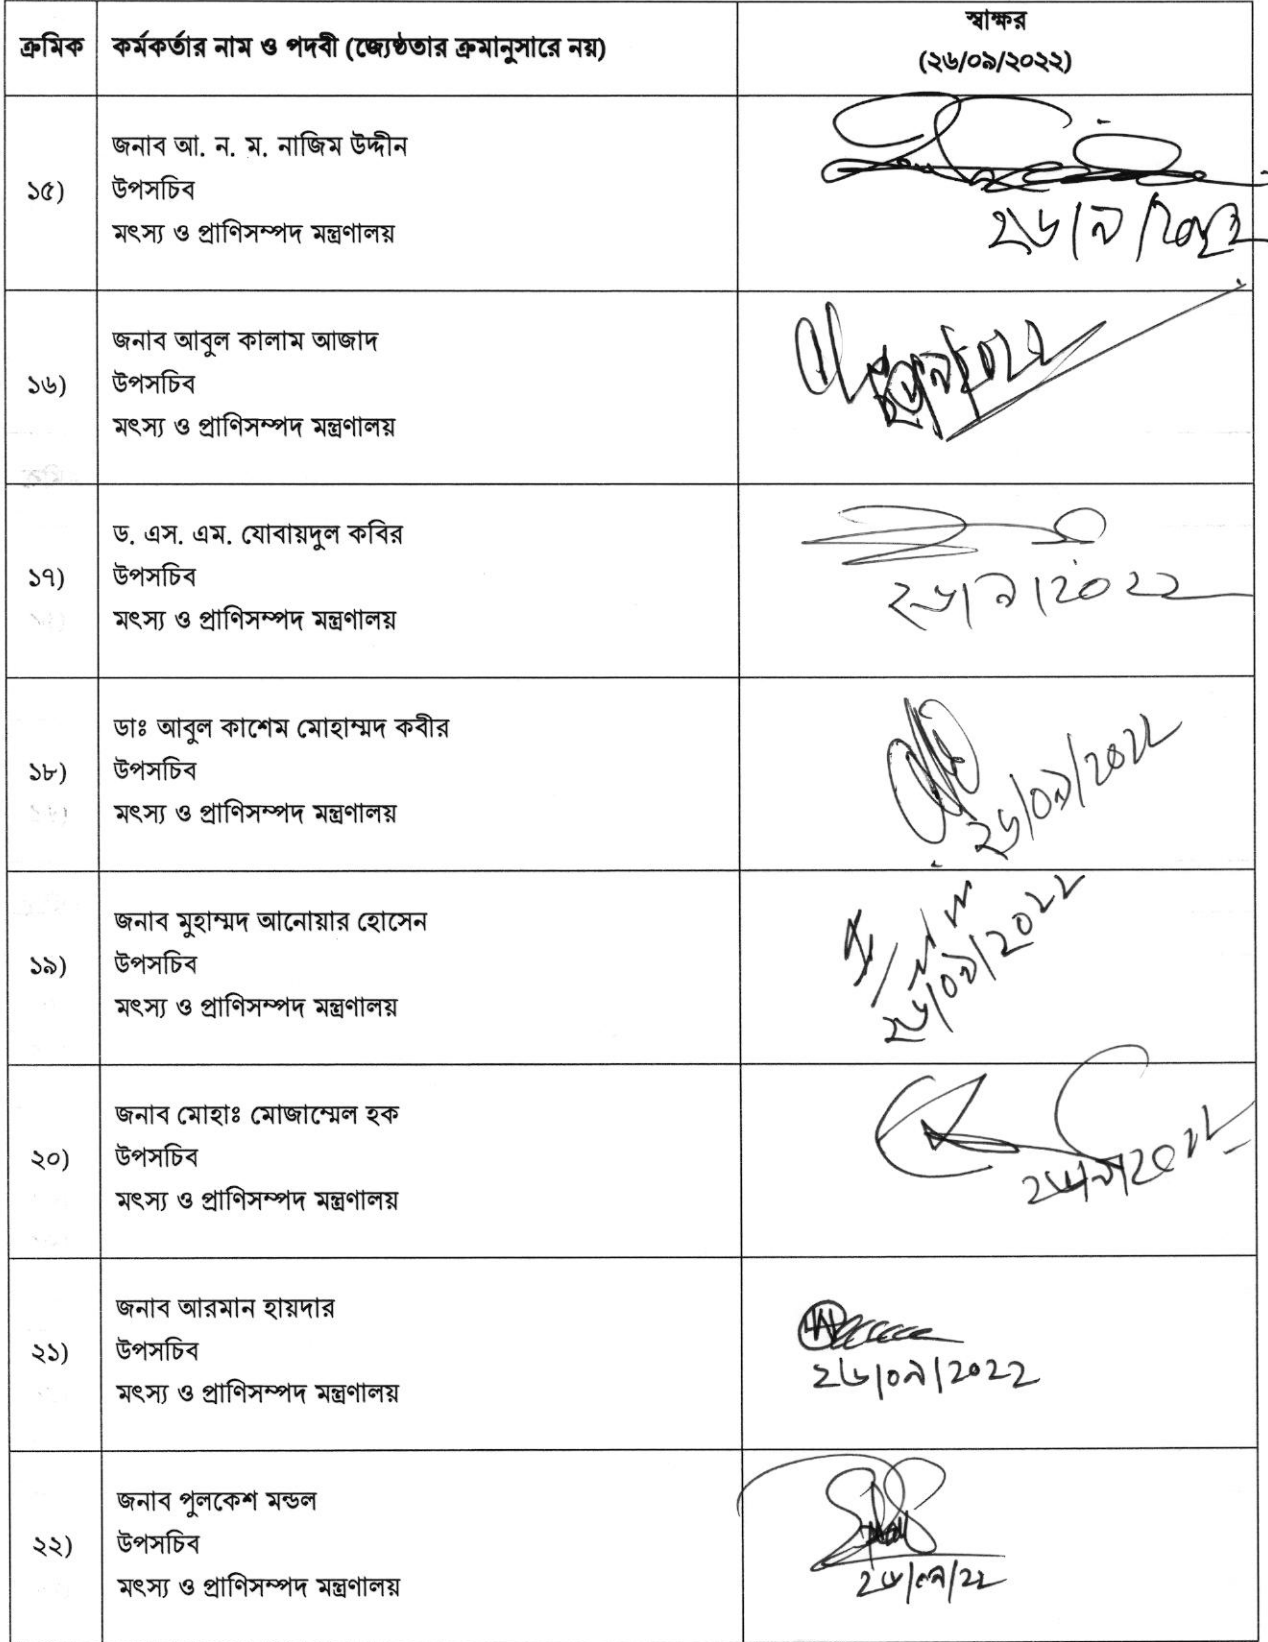 ক্রমিক কর্মকর্তার নাম ও পদবী (জ্যেষ্ঠতার ক্রমানুসারে নয়) স্বাক্ষর
(২৬/০৯/২০২২)
১৫) জনাব আ. ন. ম. নাজিম উদ্দীন
উপসচিব
মৎস্য ও প্রাণিসম্পদ মন্ত্রণালয়
২৬/৯/২০২২
১৬) জনাব আবুল কালাম আজাদ
উপসচিব
মৎস্য ও প্রাণিসম্পদ মন্ত্রণালয়
১৭) ড. এস. এম. যোবায়দুল কবির
উপসচিব
মৎস্য ও প্রাণিসম্পদ মন্ত্রণালয়
২৬/৯/২০২২
১৮) ডাঃ আবুল কাশেম মোহাম্মদ কবীর
উপসচিব
মৎস্য ও প্রাণিসম্পদ মন্ত্রণালয়
২৬/০৯/২০২২
১৯) জনাব মুহাম্মদ আনোয়ার হোসেন
উপসচিব
মৎস্য ও প্রাণিসম্পদ মন্ত্রণালয়
২৬/০৯/২০২২
২০) জনাব মোহাঃ মোজাম্মেল হক
উপসচিব
মৎস্য ও প্রাণিসম্পদ মন্ত্রণালয়
২৬/৯/২০২২
২১) জনাব আরমান হায়দার
উপসচিব
মৎস্য ও প্রাণিসম্পদ মন্ত্রণালয়
২৬/০৯/২০২২
২২) জনাব পুলকেশ মন্ডল
উপসচিব
মৎস্য ও প্রাণিসম্পদ মন্ত্রণালয়
২৬/০৯/২২